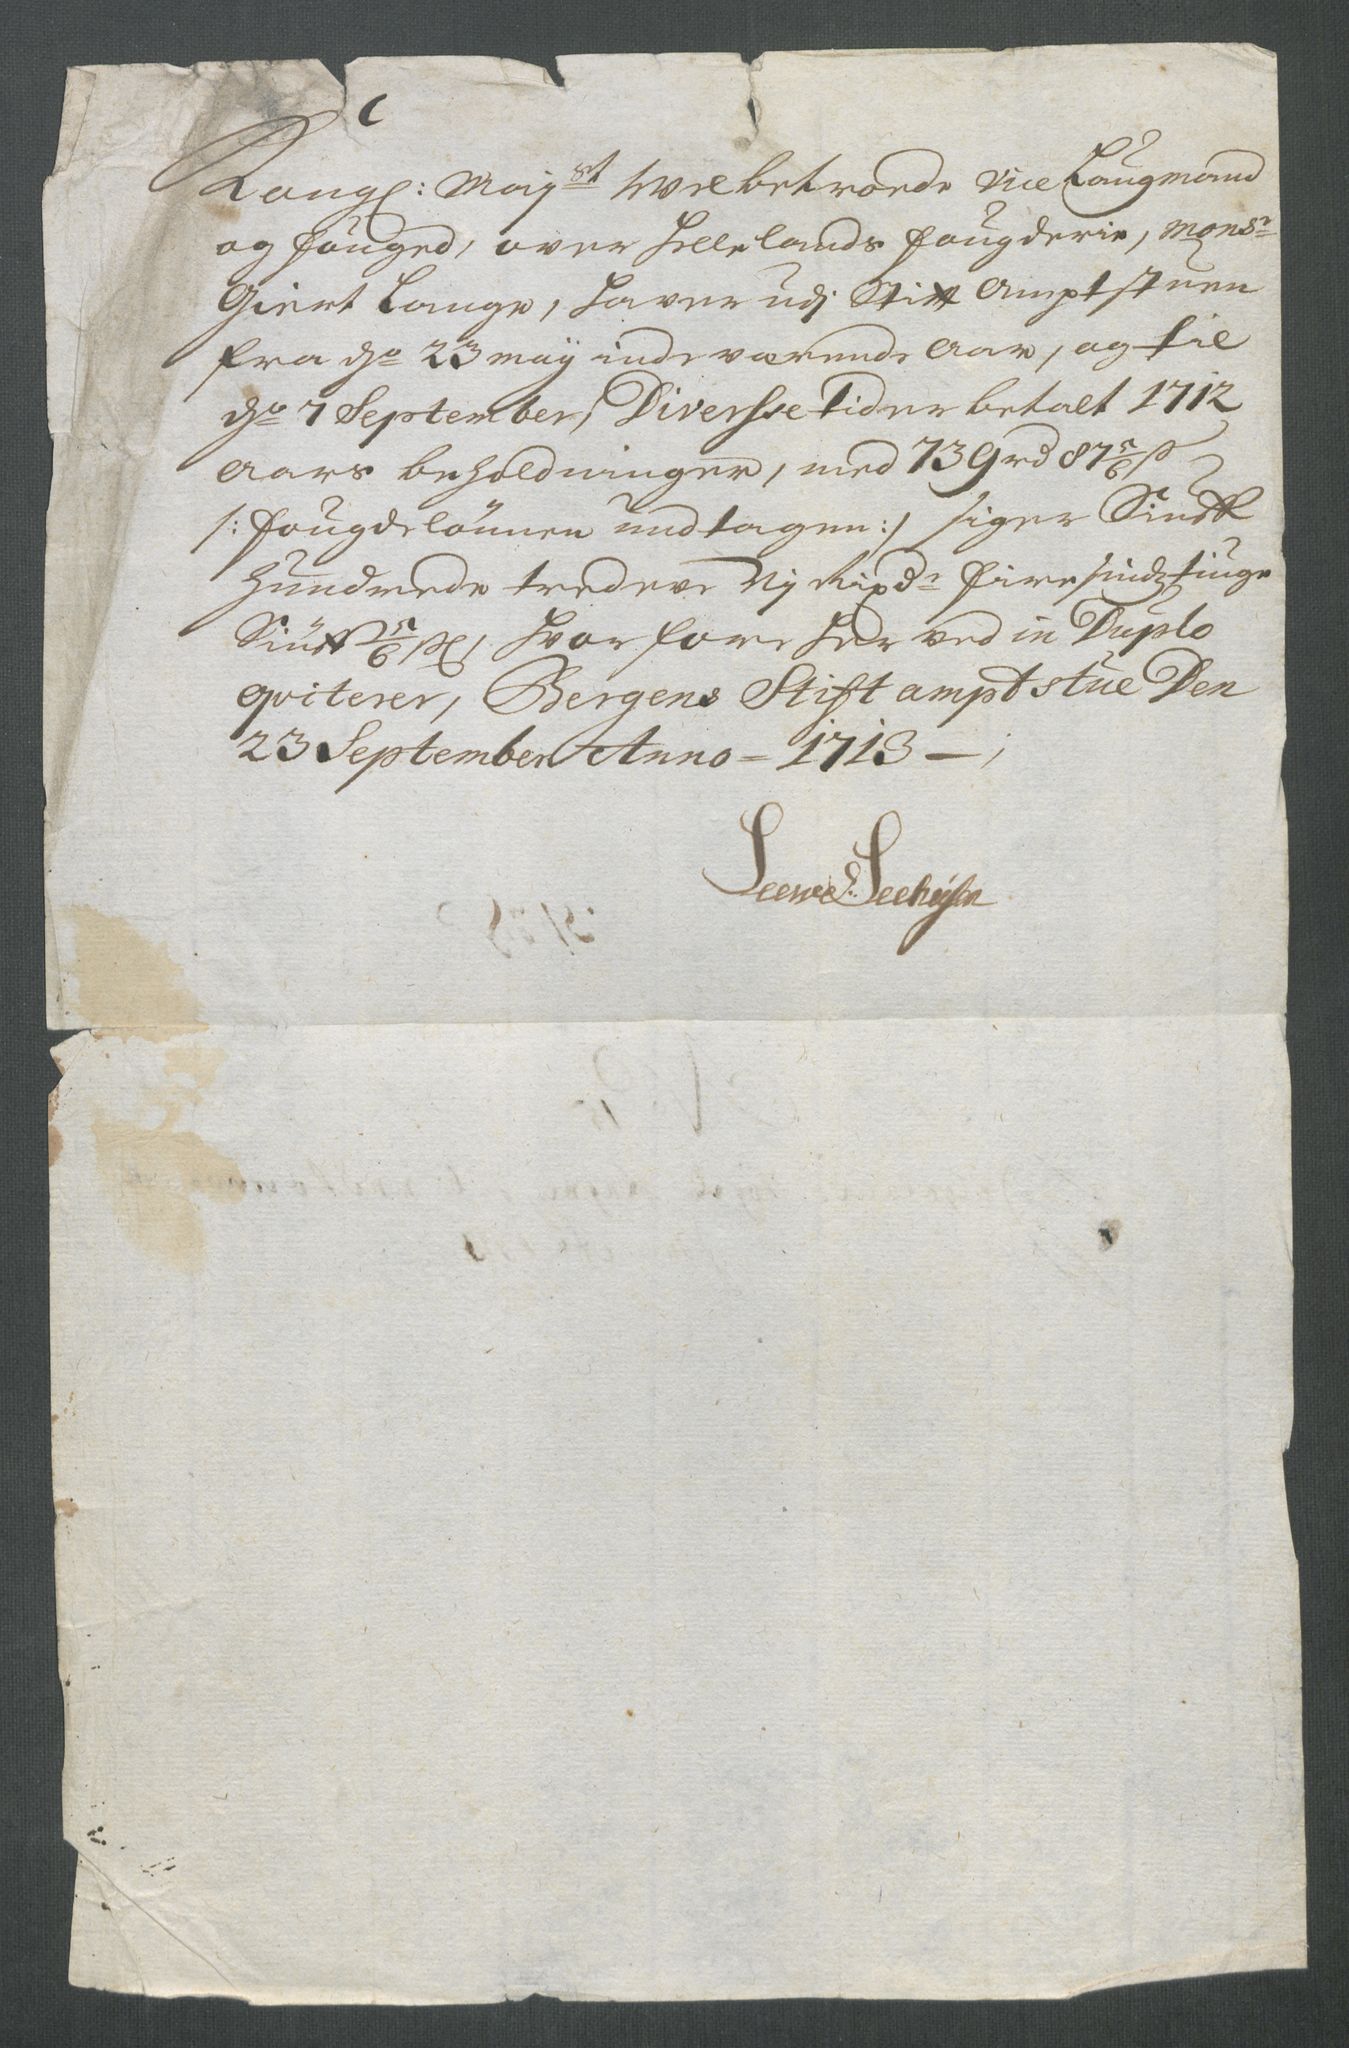 C
Kongl: Maijst Welbetroede Vice Laugmand
og fouged, over Hellelands fougderie, Monsr:
Giert Lange, Haver udj Stift Amptstuen
fra do 23 maij indeværende Aar, og til
do 7 September, Diversse tider betalt 1712
Aars beholdninger, med 739 rd 87 5/6 ß
/: fougdelönnen undtagen :/ siger Siuff
Hundrede tredeve Nj Rixdr firesindztiuge
Siuff 5/6 ß, Hvor fore Her ved in Duplo
qviterer, Bergens Stiftamptstue Den
23 September Anno - 1713 —
Seehusen